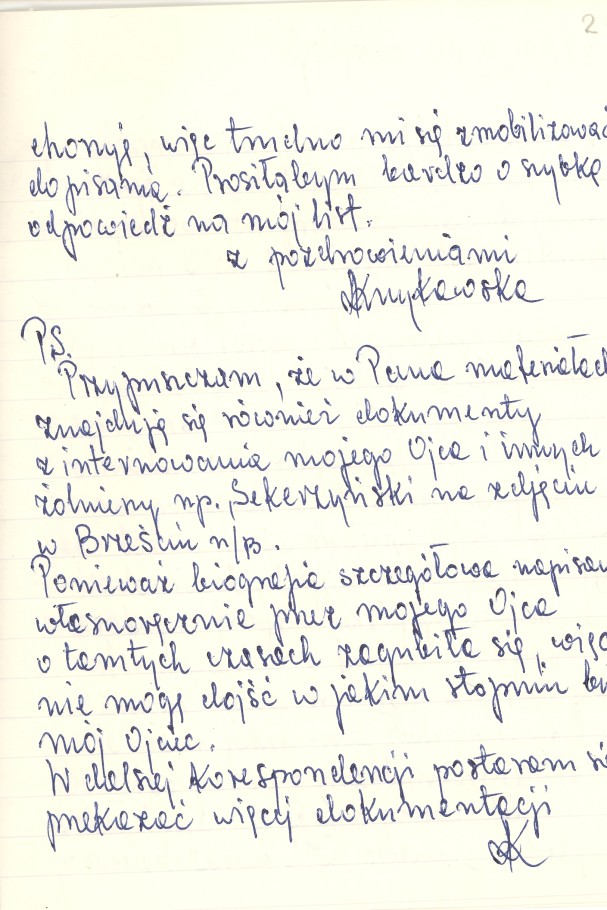 2
choruję, więc trudno mi się zmobilizować
do pisania. Prosiłabym bardzo o szybką
odpowiedź na mój list.
z pozdrowieniami
PS.
Przypuszczam, że w Pana materiałach
znajdują się również dokumenty
z internowania mojego Ojca i innych
żołnierzy np. Sekerzyński na zdjęciu
w Brześciu n/B.
Ponieważ biografia szczegółowa napisan
własnoręcznie przez mojego Ojca
o tamtych czasach zagubiła się, więc
nie mogę dojść w jakim stopniu
mój Ojciec.
W dalszej korespondencji postaram si
przekazać więcej dokumentacji
AK